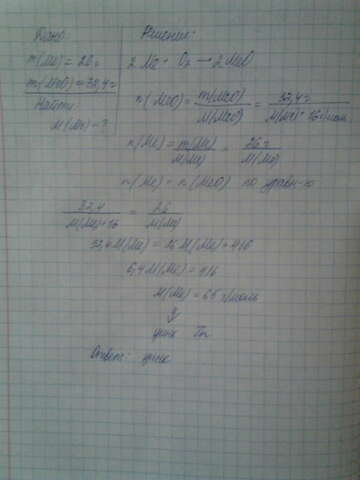 Дано:
m(Me) = 26 г
m(MeO) = 32,4 г
Найти:
M(Me) - ?
Решение:
2 Me + O₂ → 2 MeO
n(MeO) = m(MeO) / M(MeO) = 32,4 г / M(Me) + 16 г/моль
n(Me) = m(Me) / M(Me) = 26 г / M(Me)
n(Me) = n(MeO) по уравн-ю
32,4 / M(Me)+16 = 26 / M(Me)
32,4 M(Me) = 26 M(Me) + 416
6,4 M(Me) = 416
M(Me) = 65 г/моль
цинк Zn
Ответ: цинк